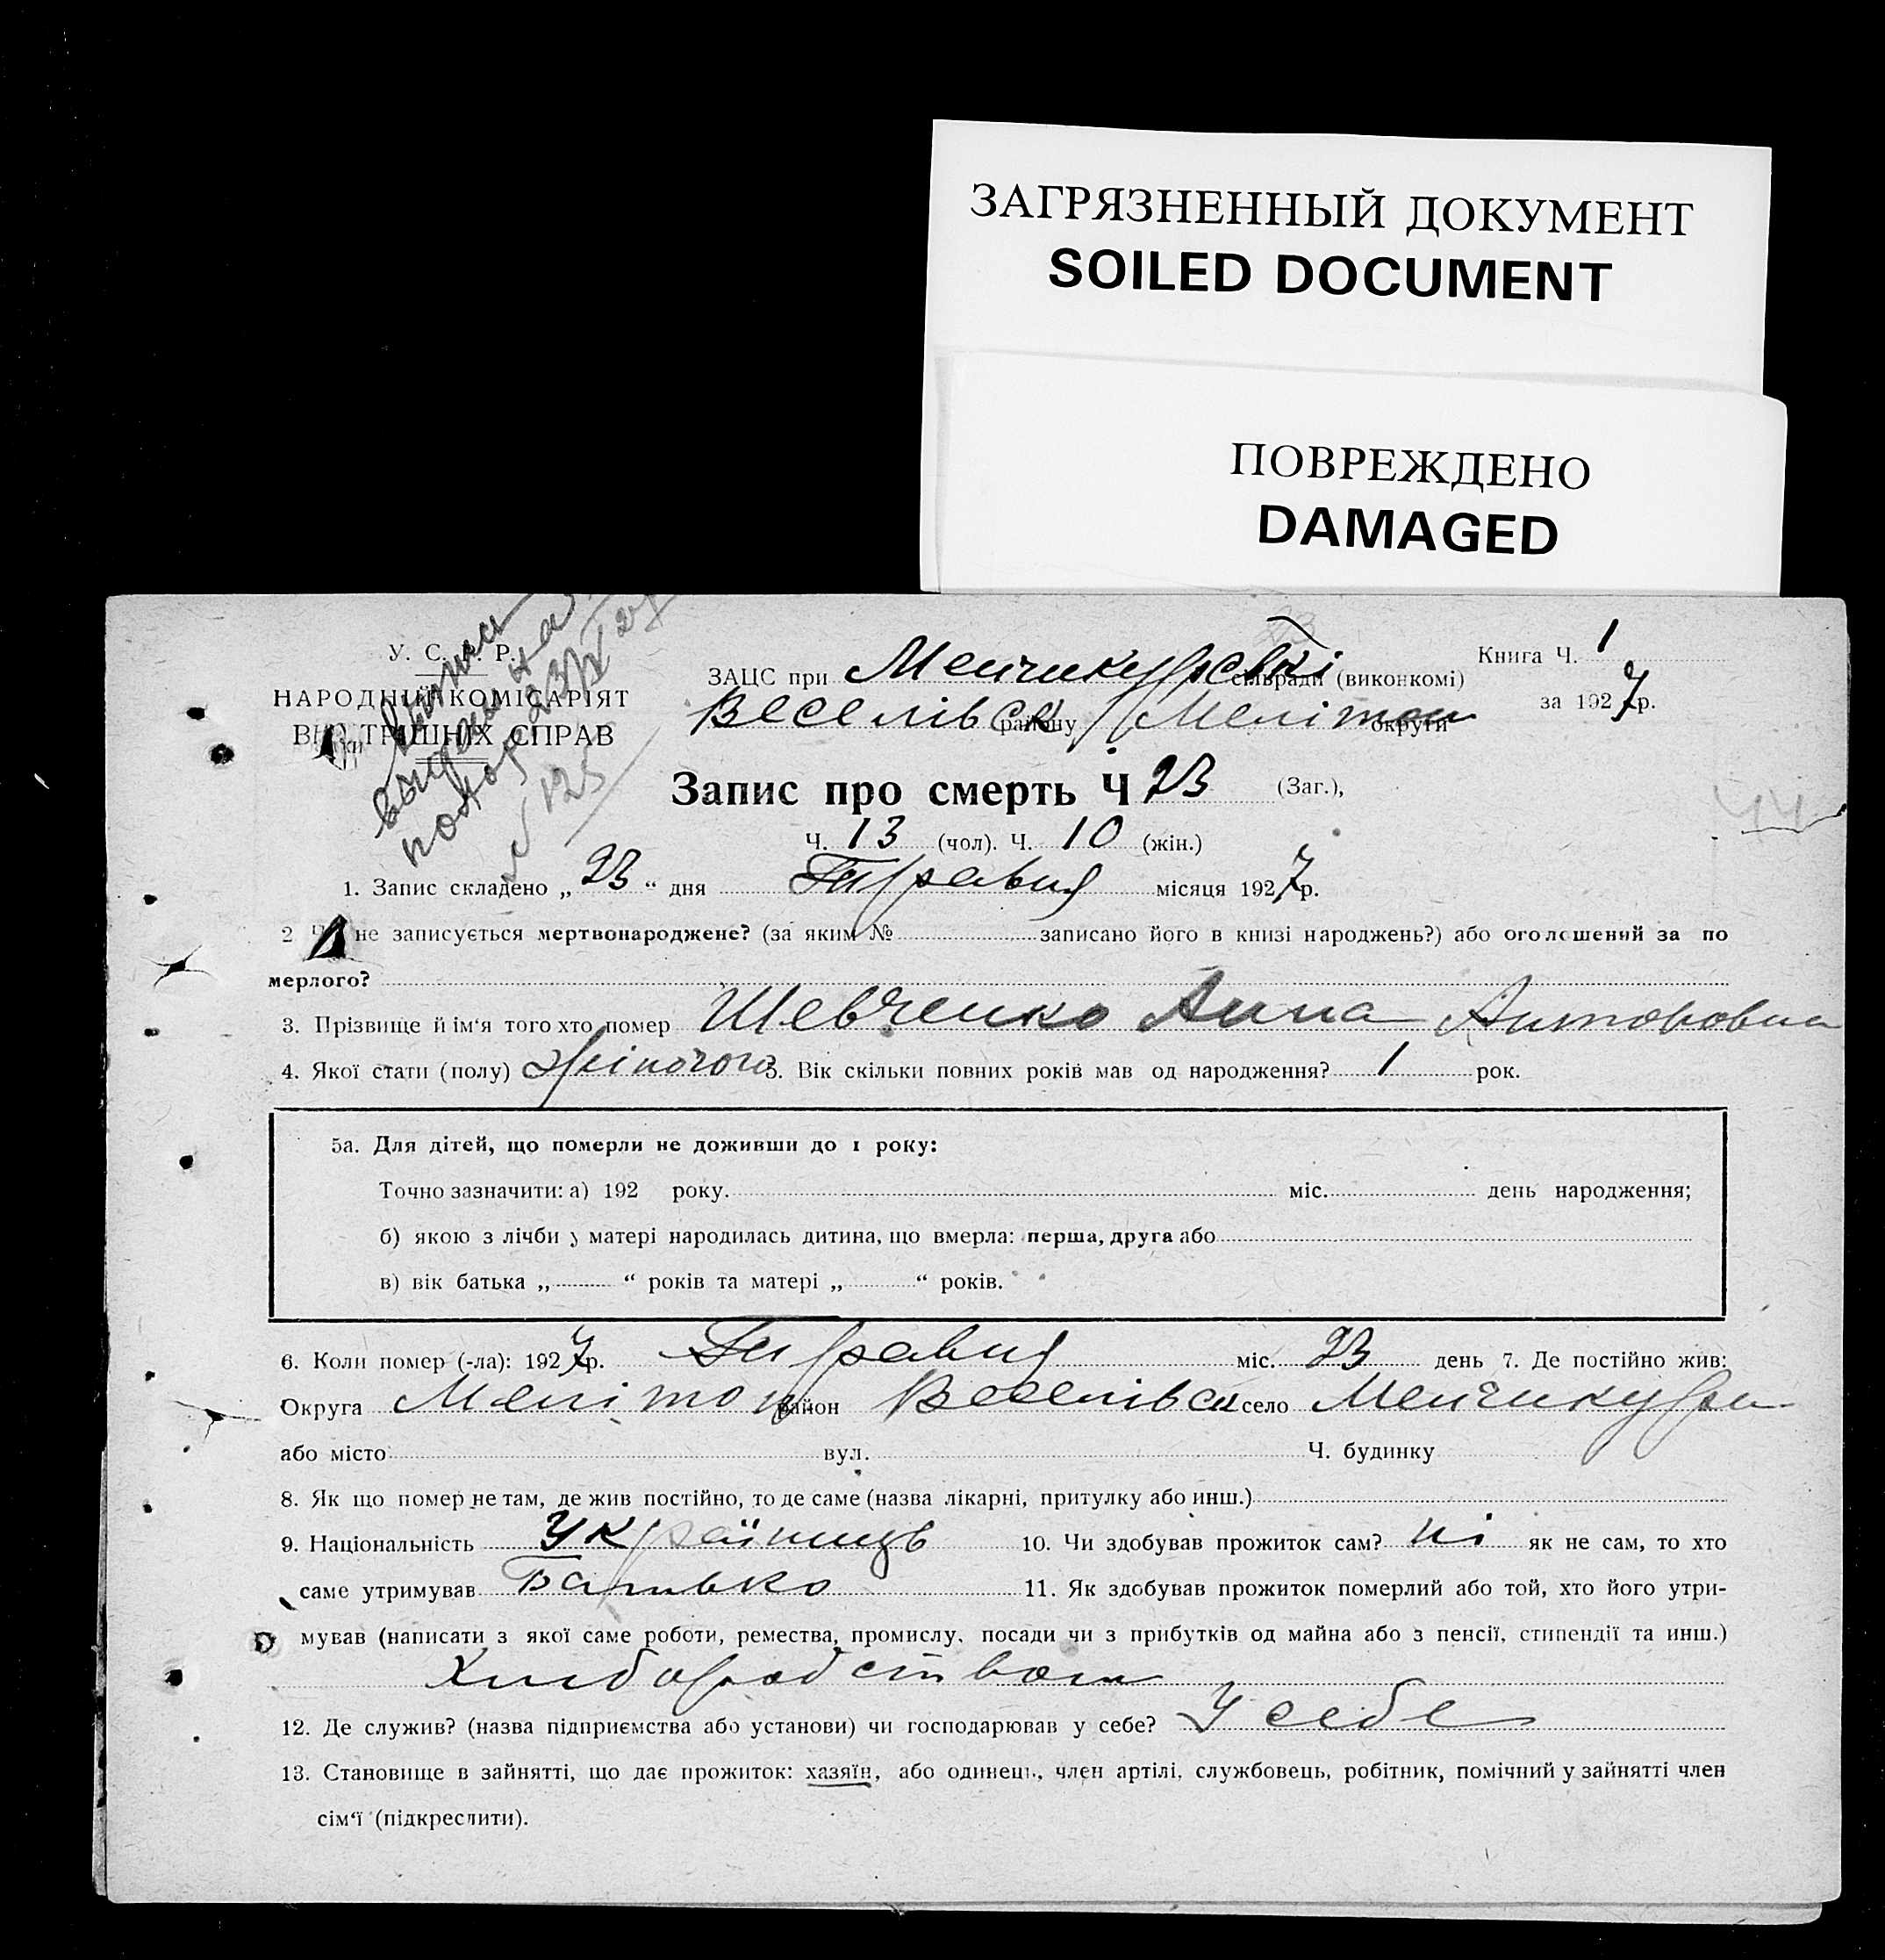 ЗАГРЯЗНЕННЫЙ ДОКУМЕНТ
SOILED DOCUMENT
ПОВРЕЖДЕНО
DAMAGED
У. С. Р. Р.
НАРОДНІЙ КОМІСАРІЯТ
ВНУТРІШНІХ СПРАВ
№ 125
Книга Ч. 1
за 1927 р.
ЗАЦС при Менчикурské сільради (виконкомі)
Веселівск району Мелітоп округи
Запис про смерть Ч 23 (Заг.),
Ч. 13 (чол). Ч. 10 (жін.)
44
1. Запис складено „ 23 “ дня місяця 1927 р.
2 не записується мертвонароджене? (за яким № записано його в книзі народжень?) або оголошений за по
мерлого?
3. Прізвище й ім‘я того хто помер Шевченко Анна Антоновна
4. Якої стати (полу) жіночого 5. Вік скільки повних років мав од народження? 1 рок.
5а. Для дітей, що померли не доживши до 1 року:
Точно зазначити: а) 192 року. міс. день народження;
б) якою з лічби у матері народилась дитина, що вмерла: перша, друга або
в) вік батька „ “ років та матері „ “ років.
6. Коли помер (-ла): 1927 р. міс. 23 день 7. Де постійно жив:
Округа Мелітоп район Веселівск село Менчикури
або місто вул. Ч. будинку
8. Як що помер не там, де жив постійно, то де саме (назва лікарні, притулку або инш.)
9. Національність Українець 10. Чи здобував прожиток сам? ні як не сам, то хто
саме утримував Батько 11. Як здобував прожиток померлий або той, хто його утри-
мував (написати з якої саме роботи, ремества, промислу, посади чи з прибутків од майна або з пенсії, стипендії та инш.)
Хлиборобством
12. Де служив? (назва підприємства або установи) чи господарював у себе? У себе
13. Становище в зайнятті, що дає прожиток: хазяїн, або одинець, член артілі, службовець, робітник, помічний у зайнятті член
сім‘ї (підкреслити).